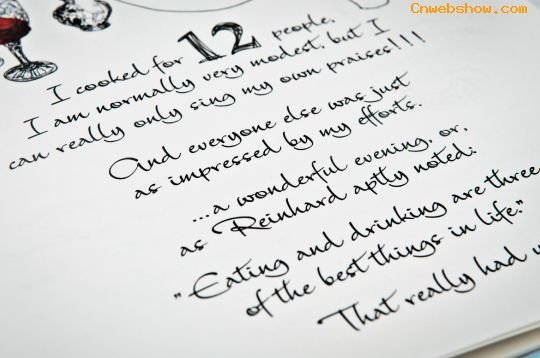 Cnwebshow.com
I cooked for 12 people.
I am normally very modest, but I
can really only sing my own praises!!!
And everyone else was just
as impressed by my efforts.
...a wonderful evening, or,
as Reinhard aptly noted:
"Eating and drinking are three
of the best things in life."
That really had